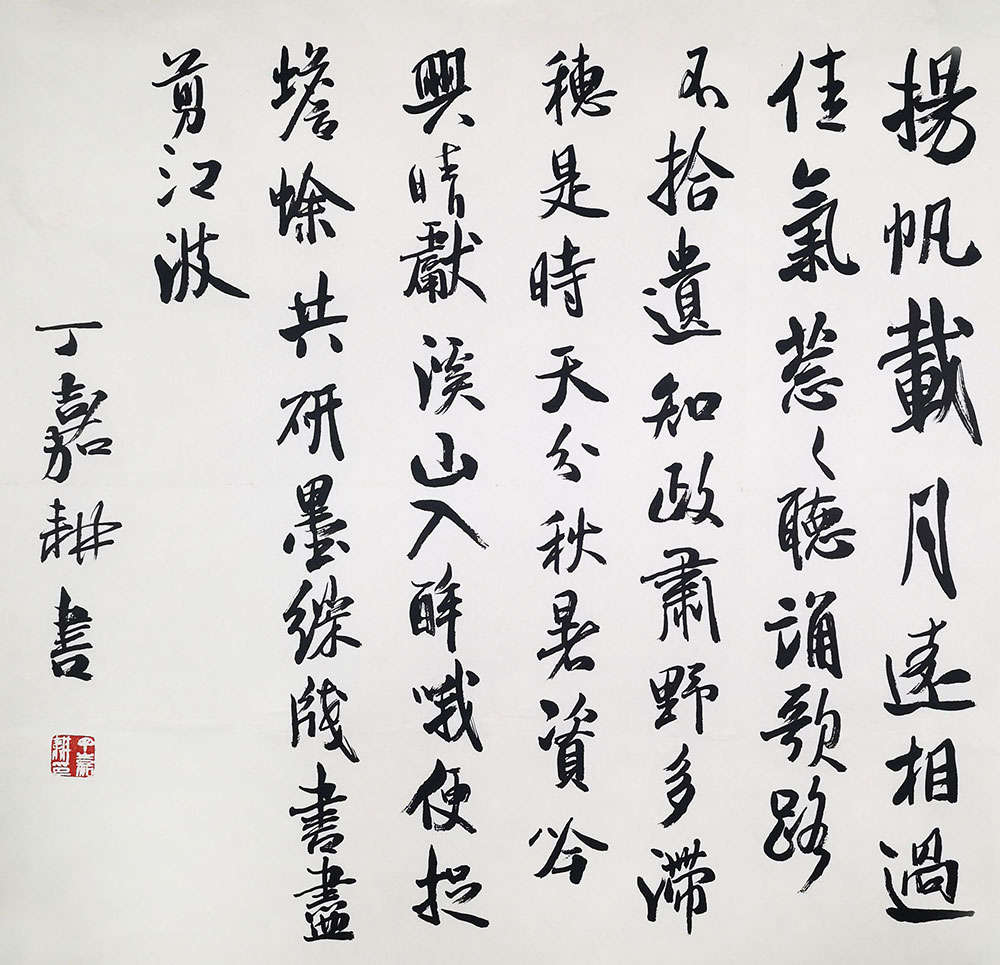 揚帆載月遠相過
佳氣葱々聽誦歌路
不拾遺知政肅野多滯
穗是時天分秋暑資吟
興晴獻溪山入酔哦便捉
蟾蜍共研墨綵牋書盡
剪江波
丁嘉耕書
丁嘉耕印